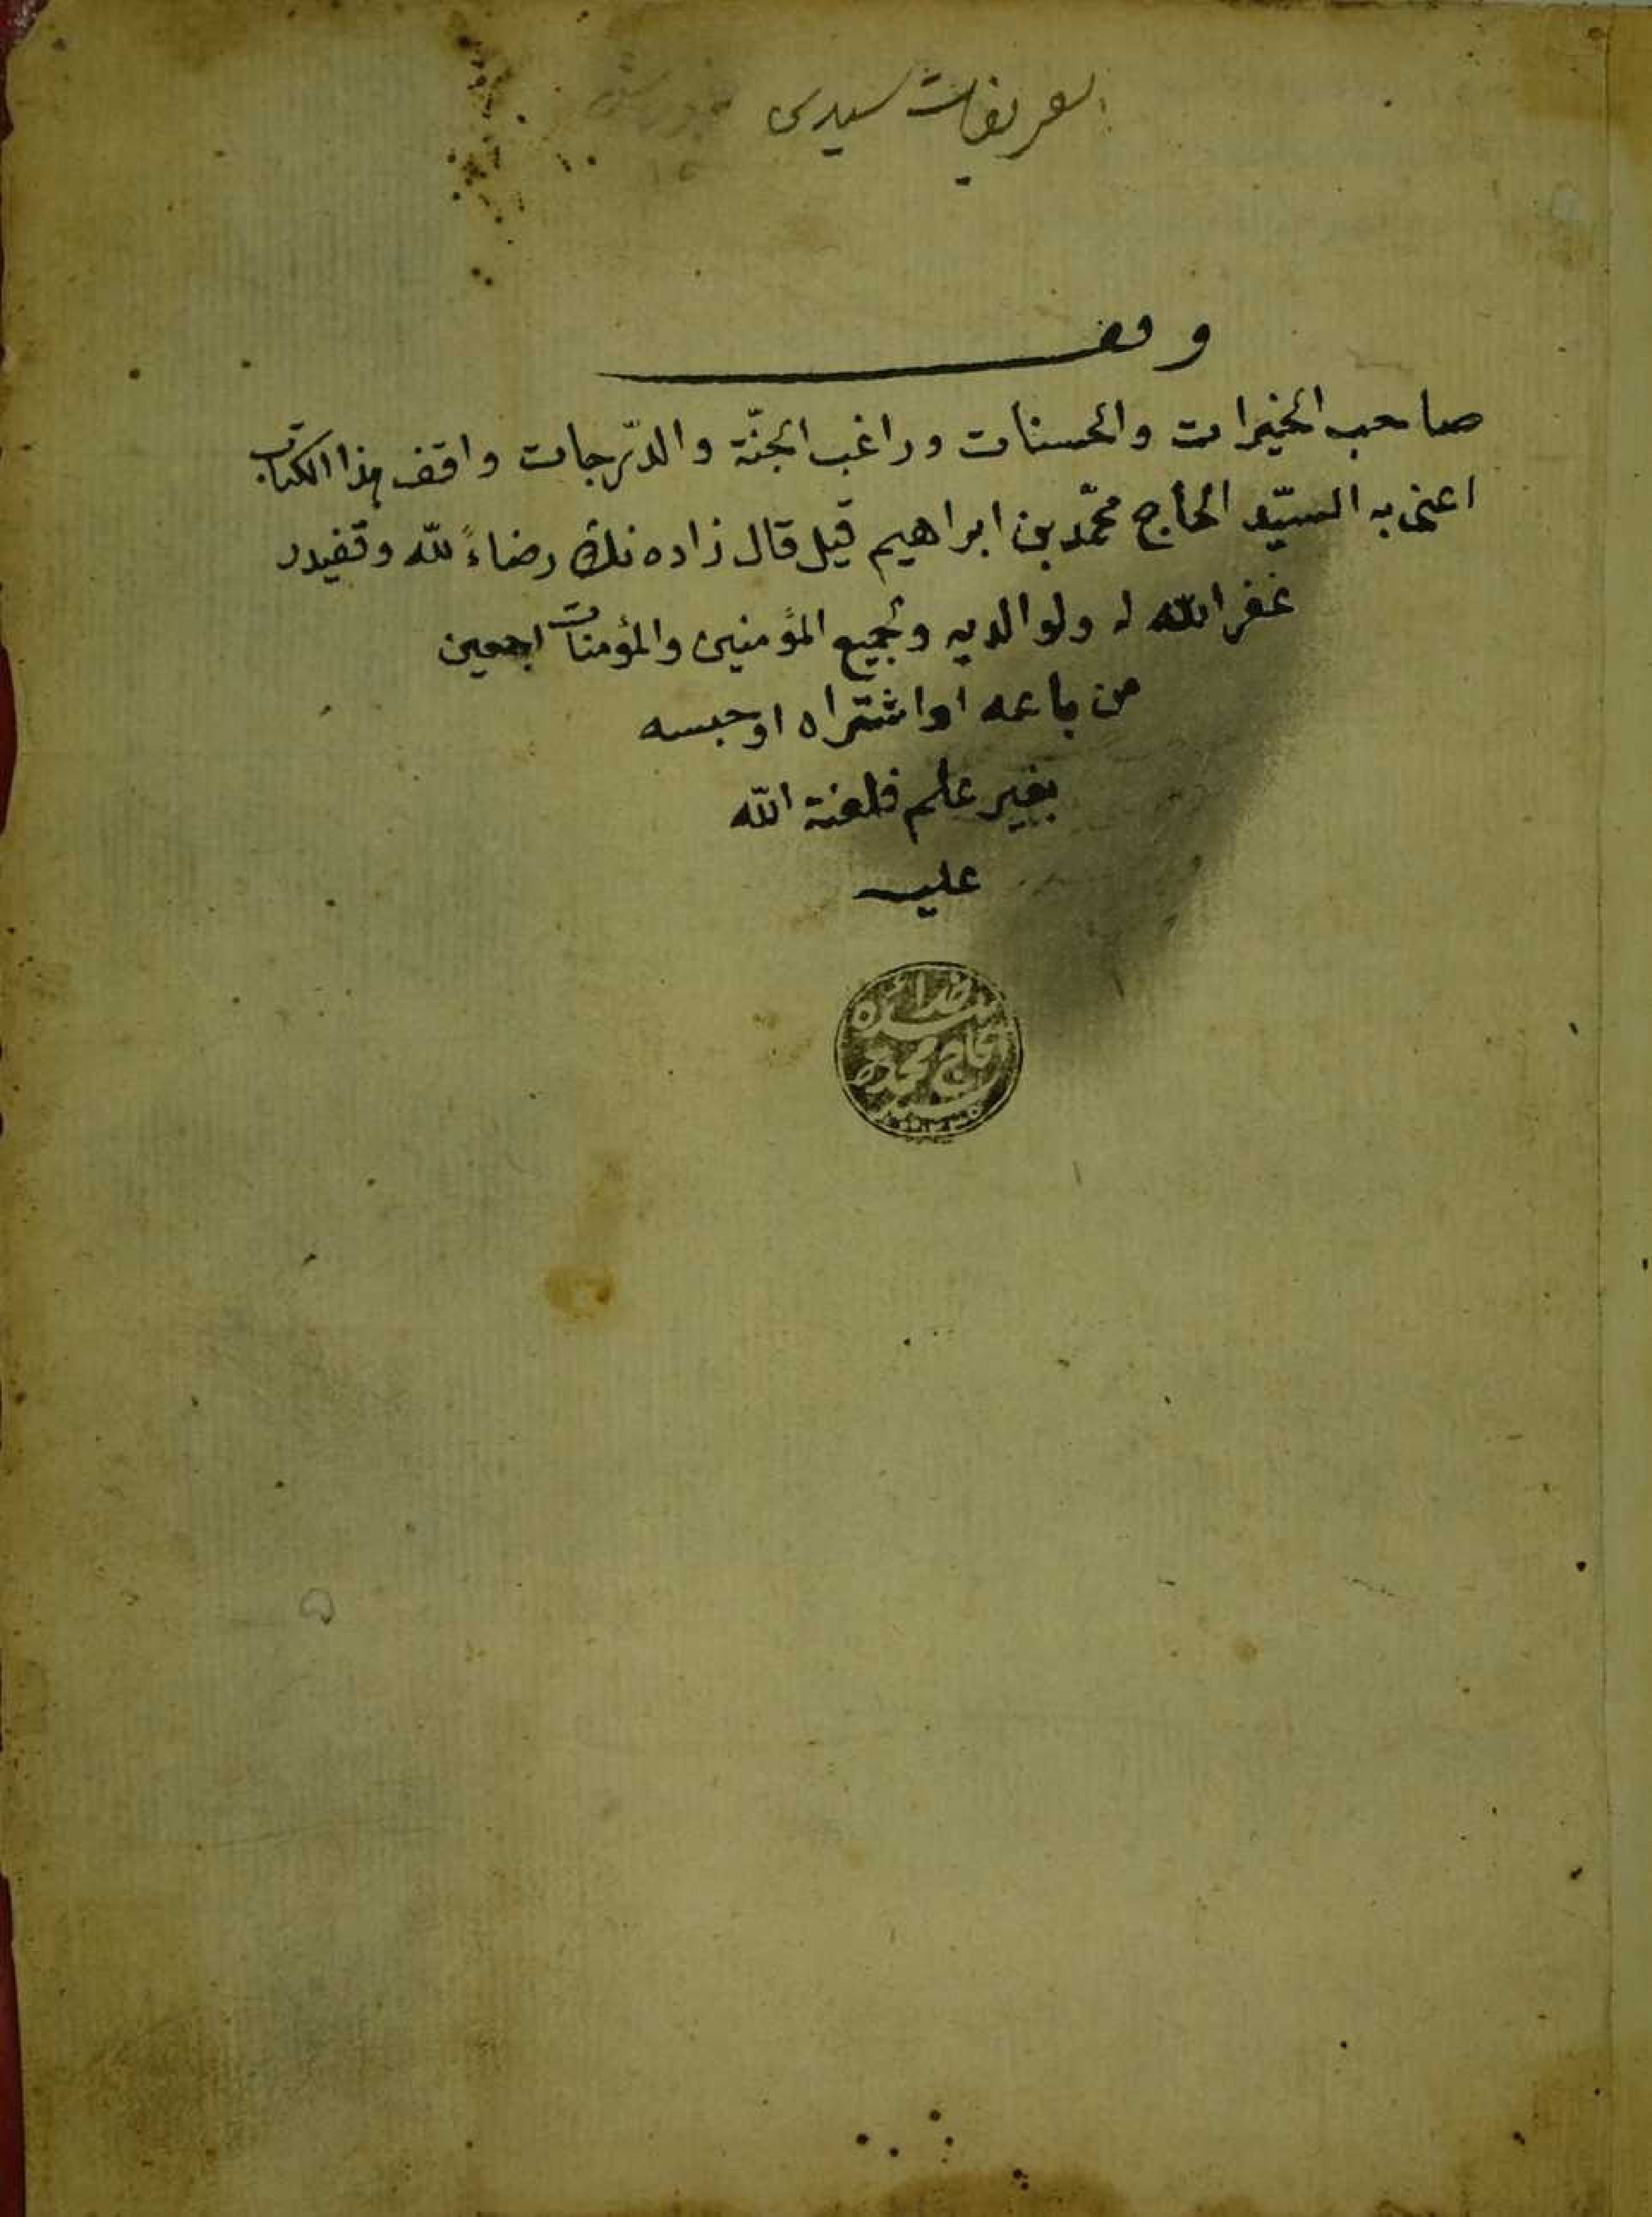 التعريفات سيدى
وقف
صاحب الخيرات والحسنات وراغب الجنّة والدّرجات واقف هذا الكتاب
اعنى به السيّد الحاج محمّد بن ابراهيم قيل قال زاده نك رضاءً لله وقفيدر
غفر الله له ولوالديه ولجميع المؤمنين والمؤمنات اجمعين
من باعه او اشتراه او حبسه
بغير علم فلعنة الله
عليه
الحاج محمد